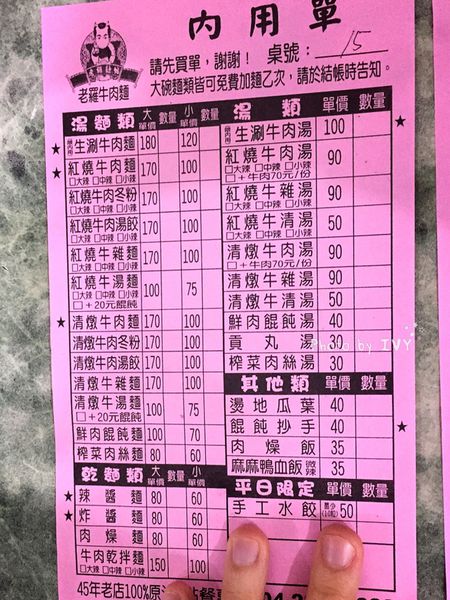 內用單
請先買單,謝謝! 桌號: 15
大碗麵類皆可免費加麵乙次,請於結帳時告知。
老羅牛肉麵
湯麵類 大單價 數量 小單價 數量
生涮牛肉麵 180 120
紅燒牛肉麵 170 100
□大辣 □中辣 □小辣
紅燒牛肉冬粉 170 100
□大辣 □中辣 □小辣
紅燒牛肉湯餃 170 100
□大辣 □中辣 □小辣
紅燒牛雜麵 170 100
□大辣 □中辣 □小辣
紅燒牛湯麵 100 75
□大辣 □中辣 □小辣
□+20元餛飩
清燉牛肉麵 170 100
清燉牛肉冬粉 170 100
清燉牛肉湯餃 170 100
清燉牛雜麵 170 100
清燉牛湯麵 100 75
□+20元餛飩
鮮肉餛飩麵 100 70
榨菜肉絲麵 80 60
乾麵類 大單價 數量 小單價 數量
辣醬麵 80 60
炸醬麵 80 60
肉燥麵 80 60
牛肉乾拌麵 150 100
□大辣 □中辣 □小辣
湯類 單價 數量
生涮牛肉湯 100
紅燒牛肉湯 90
□大辣 □中辣 □小辣
□+牛肉70元/份
紅燒牛雜湯 90
□大辣 □中辣 □小辣
紅燒牛清湯 50
□大辣 □中辣 □小辣
清燉牛肉湯 90
□+牛肉70元/份
清燉牛雜湯 90
清燉牛清湯 50
鮮肉餛飩湯 40
貢丸湯 30
榨菜肉絲湯 30
其他類 單價 數量
燙地瓜葉 40
餛飩抄手 40
肉燥飯 35
麻麻鴨血飯 微辣 35
平日限定 單價 數量
手工水餃 最少(10粒) 50
45年老店100%原
Photo by IVY